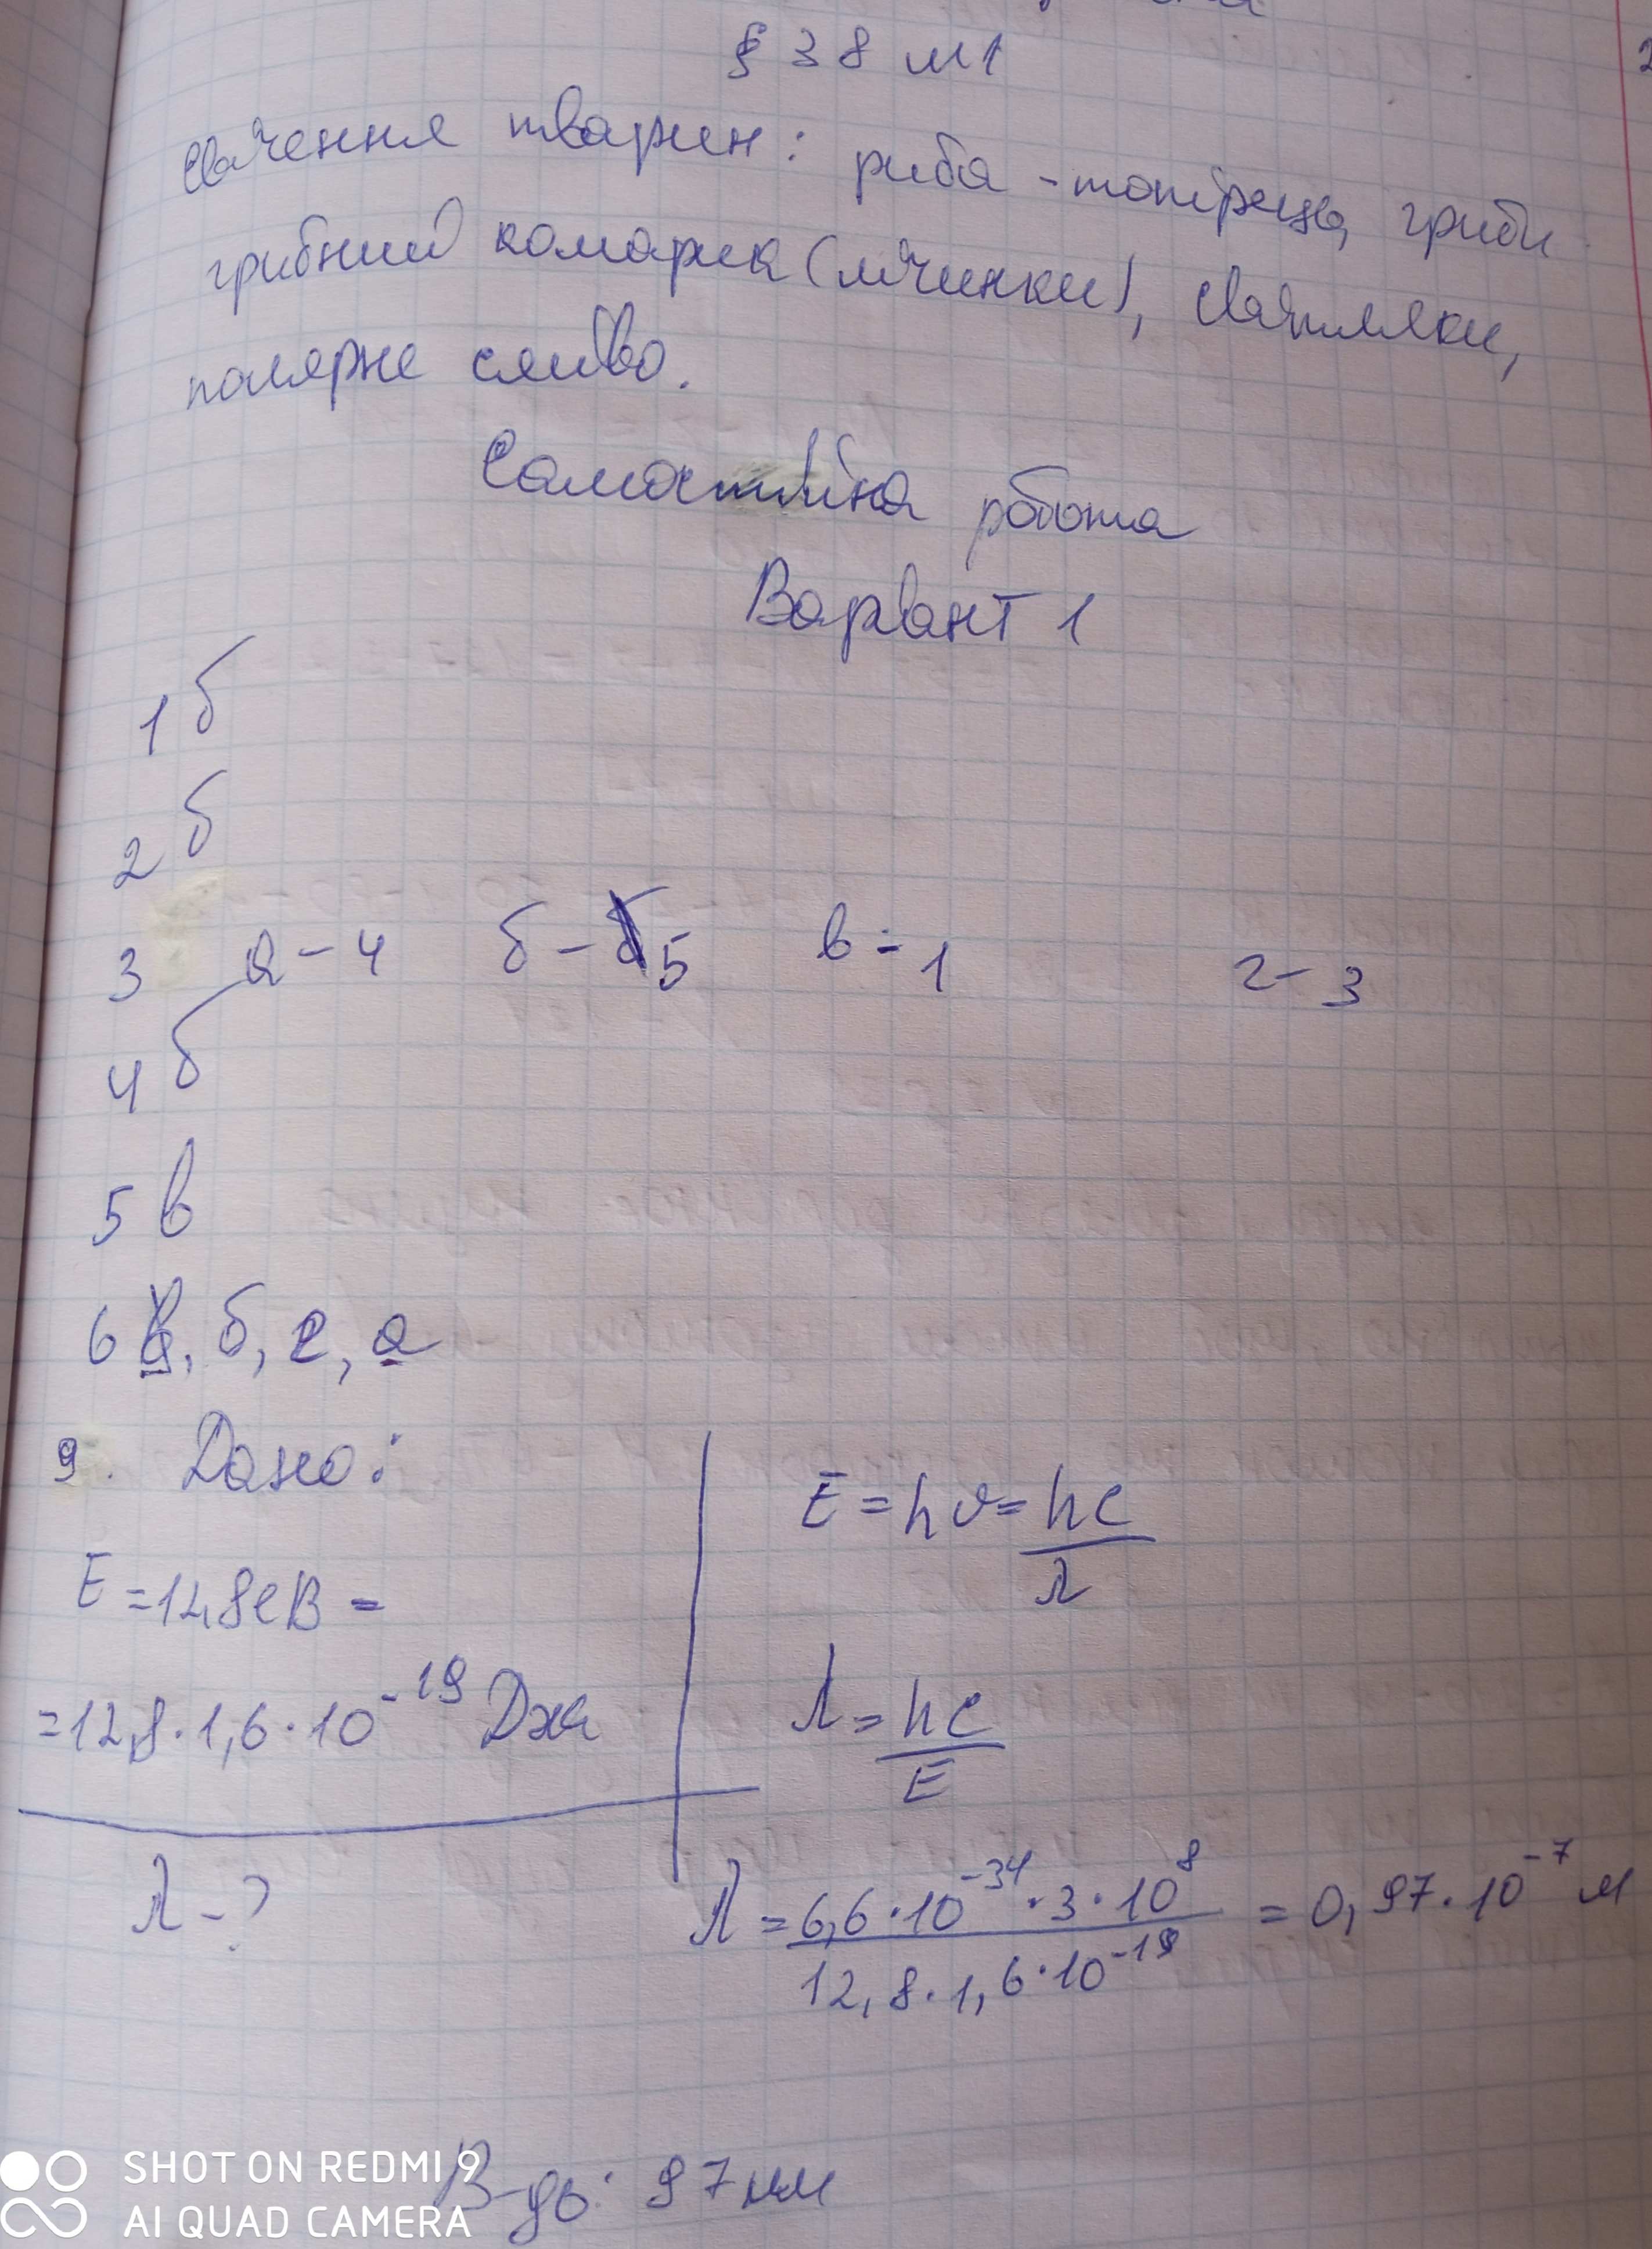 § 38 м1
Свічення тварин: риба-топірець, гриби
грибний комарик (личинки), світляки,
полярне сяйво.
Самостійна робота
Варіант 1
1 б
2 б
3 а-4 б-5 в-1 г-3
4 б
5 в
6 б, г, а
9. Дано:
E = 12,8 еВ =
= 12,8 · 1,6 · 10⁻¹⁹ Дж
λ - ?
E = hν = hc/λ
λ = hc/E
λ = 6,6 · 10⁻³⁴ · 3 · 10⁸ / 12,8 · 1,6 · 10⁻¹⁹ = 0,97 · 10⁻⁷ м
В-дь: 97 нм
SHOT ON REDMI 9
AI QUAD CAMERA